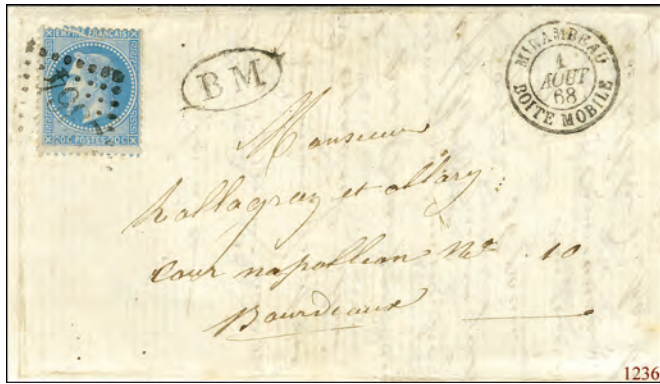 EMPIRE FRANÇAIS
20C POSTES 20C
BM
MIRAMBEAU
1
AOUT
68
BOITE MOBILE
Monsieur
et
cour napollion No 10
Bourdeaux
1236